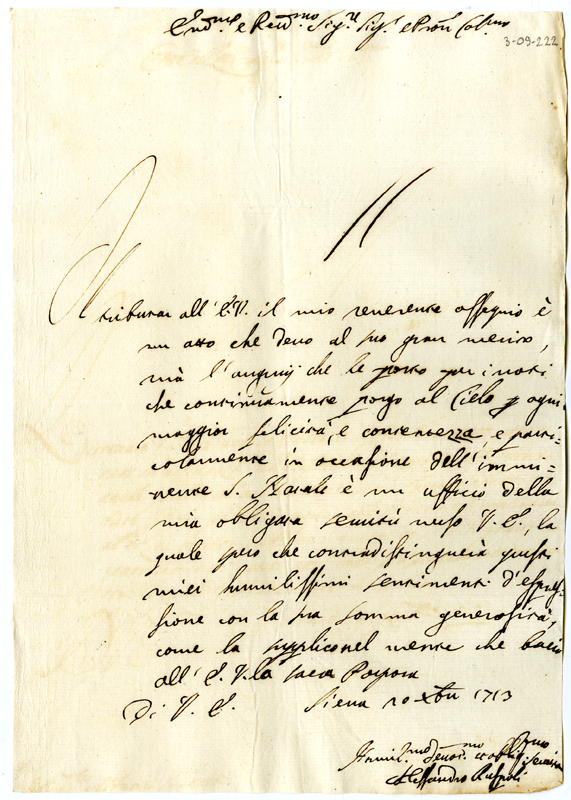 Em.mo e Rev.mo Sig.r Sig.r e Pron Col.mo
3-09-222
Il
tributar all'E.V. il mio reverente ossequio è
un atto che devo al suo gran merito,
mà l'augurij che le porto per i voti
che continuamente porgo al Cielo p ogni
maggior felicità, e contentezza, e parti-
colarmente in occasione dell'immi-
nente S. Natale è un ufficio della
mia obligata servitù verso V.E., la
quale spero che contradistinguerà questi
miei humilissimi sentimenti d'espres-
sione con la sua somma generosità,
come la supplico nel mentre che bacio
all'E.V. la sacra Porpora
Di V.E. Siena 10 Xbre 1713
Humil.mo Devot.mo et oblig.mo servitore
Alessandro Ruspoli